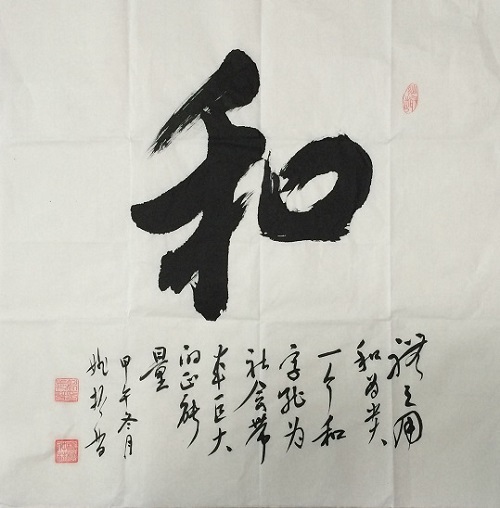 和
禮之用
和為貴
一个和
字能为
社会带
来巨大
的正能
量
甲午冬月